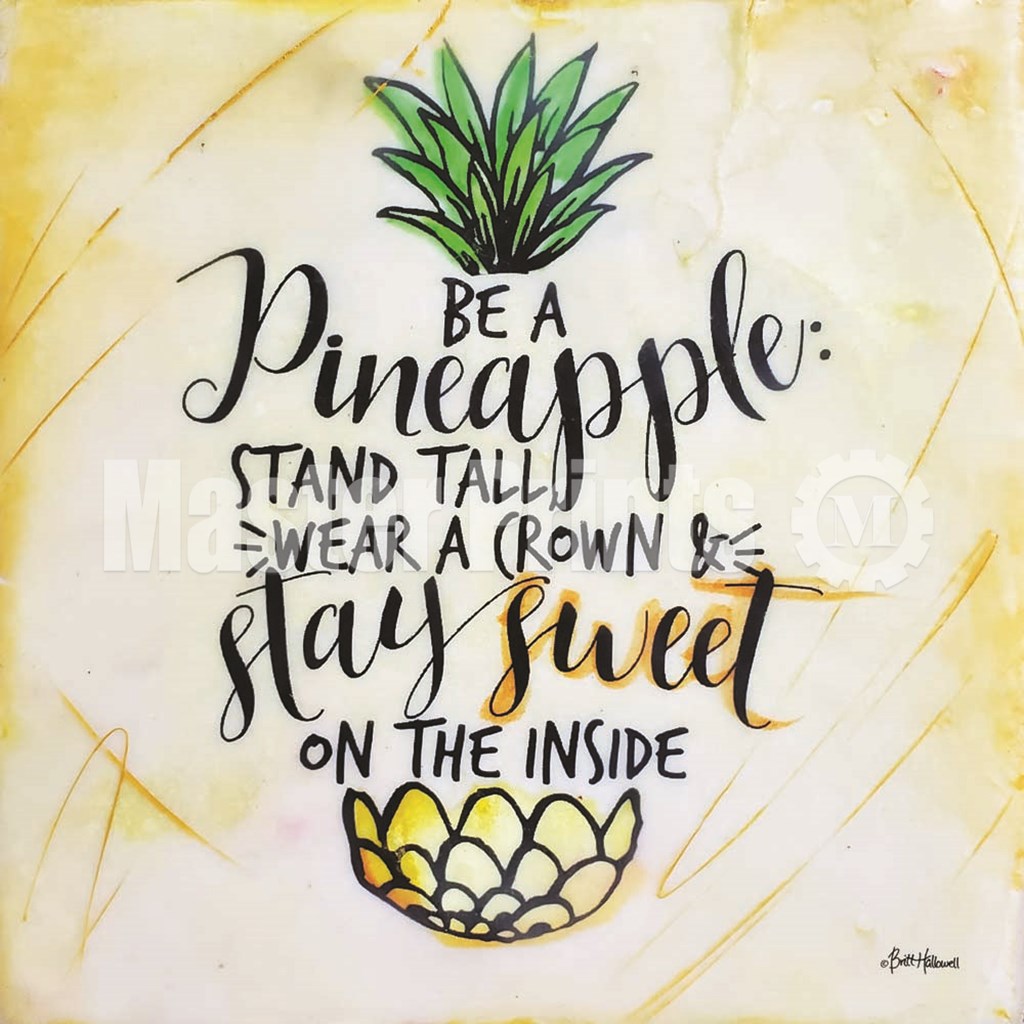 BE A
Pineapple:
STAND TALL,
WEAR A CROWN &
stay sweet
ON THE INSIDE
Master Prints M
©Britt Hallowell